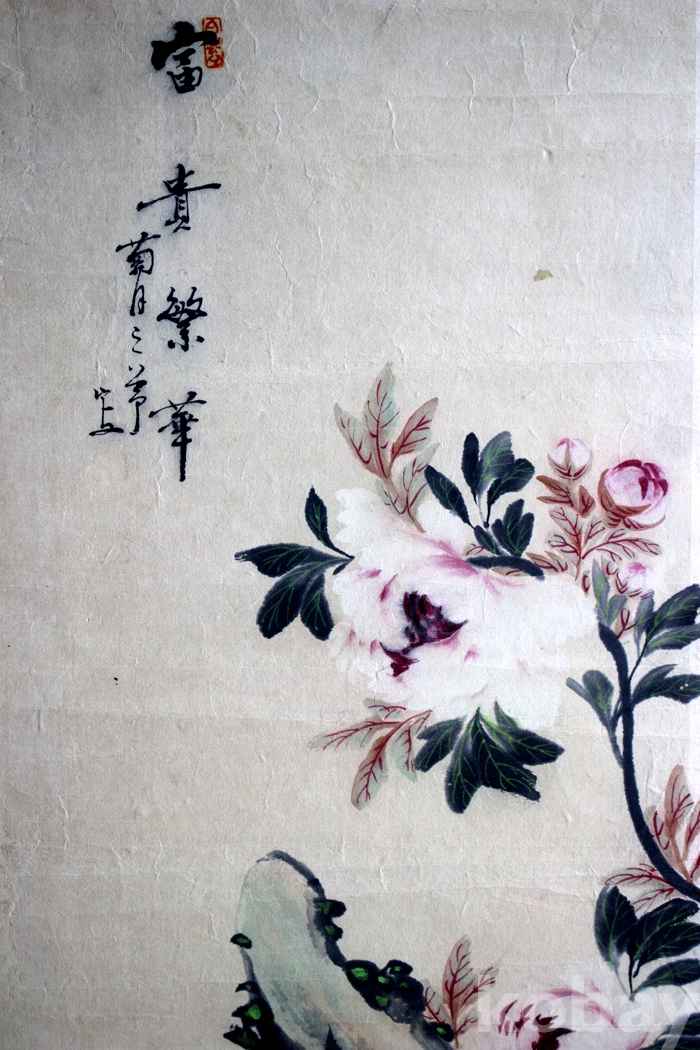 富貴繁華
菊月之節
kobay